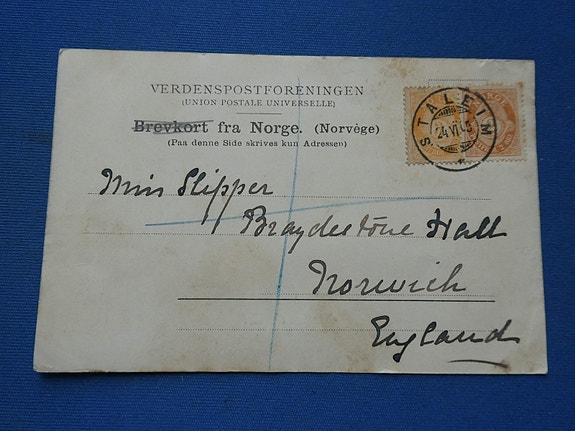 VERDENSPOSTFORENINGEN
(UNION POSTALE UNIVERSELLE)
Brevkort fra Norge. (Norvège)
(Paa denne Side skrives kun Adressen)
STALEIM
24 VI 03
Miss Slipper
Braydestone Hall
Norwich
England